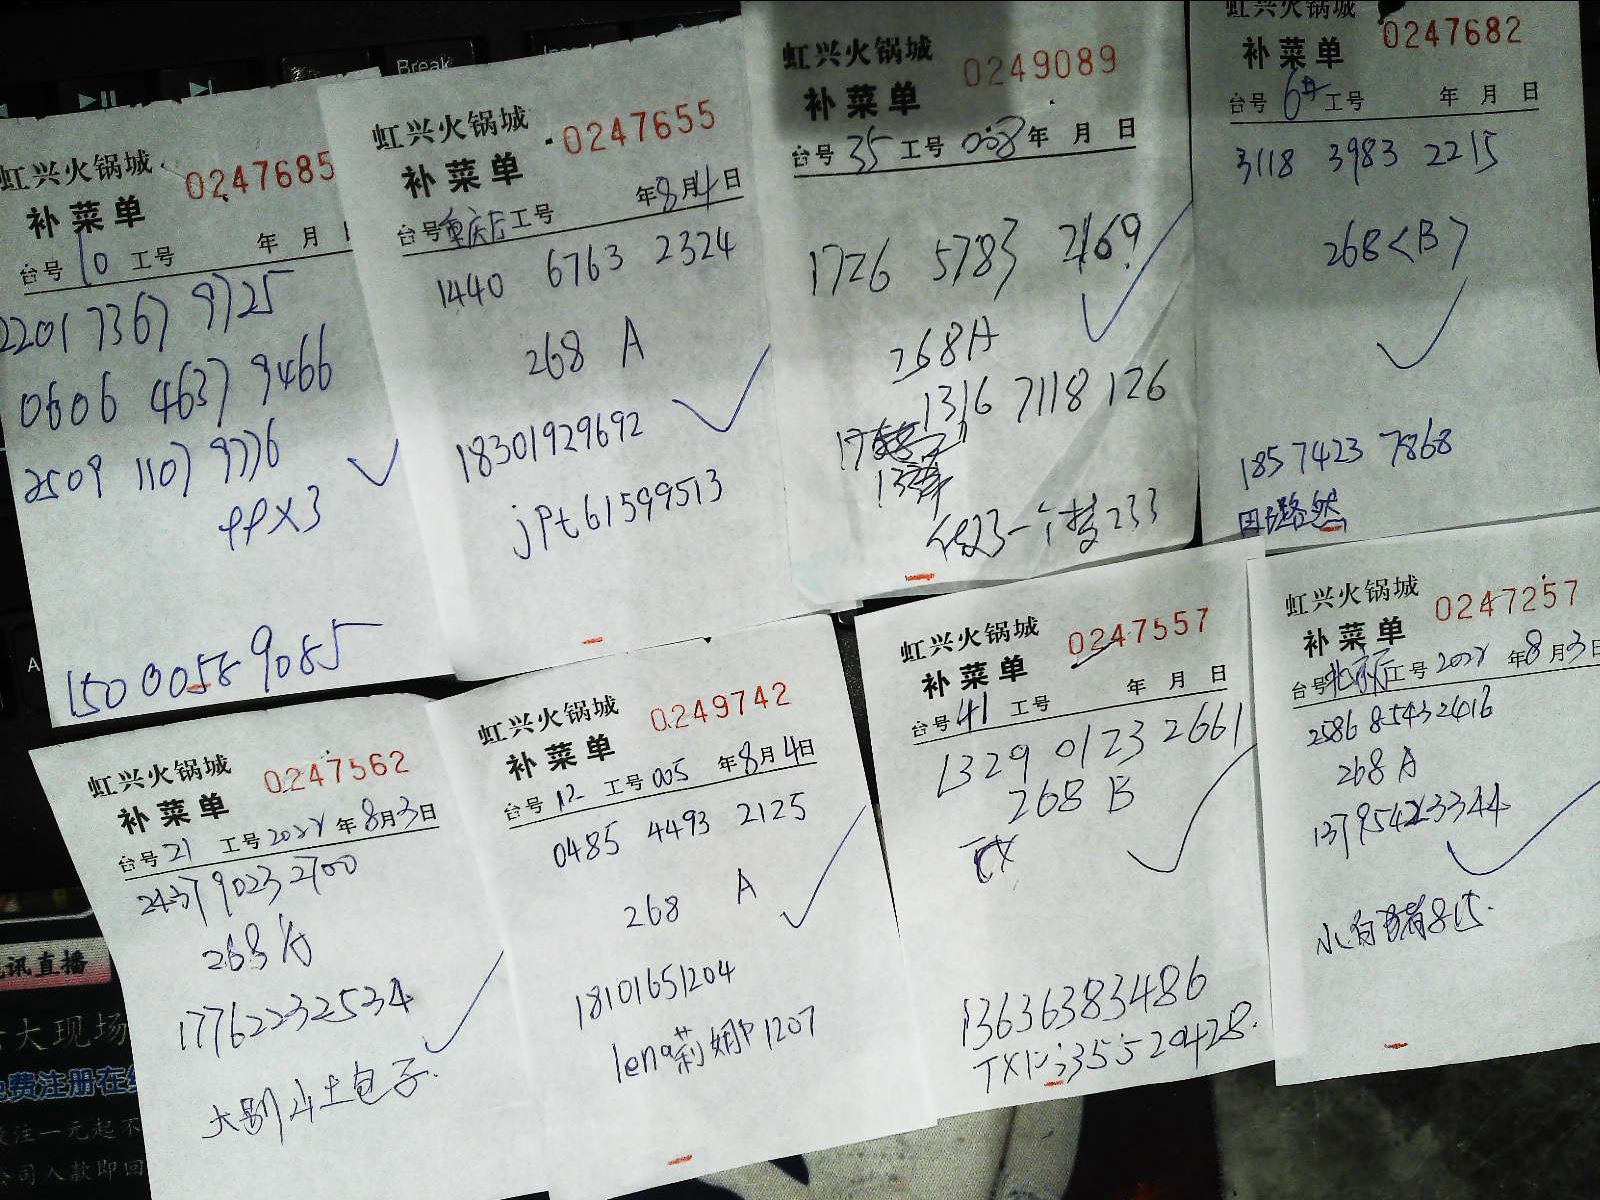 Break
虹兴火锅城 0247685
补菜单
台号 10 工号 年 月
2201 7367 9725
0606 4637 9466
2509 1107 9776
PP×3
150 0058 9085
虹兴火锅城 0247655
补菜单
台号 重庆厅 工号 年 8月4日
1440 6763 2324
268 A
18301929692
jpt61599513
虹兴火锅城 0249089
补菜单
台号 35 工号 008 年 月 日
1726 5783 2169
268A
1316 7118 126
一个梦233
虹兴火锅城 0247682
补菜单
台号 6# 工号 年 月 日
3118 3983 2215
268<B>
185 7423 7868
虹兴火锅城 0247562
补菜单
台号 21 工号 2022 年 8月3日
2437 9023 2700
268 A
17762232534
大别山土包子.
虹兴火锅城 0249742
补菜单
台号 12 工号 005 年8月4日
0485 4493 2125
268 A
18101651204
lena莉姆P1207
虹兴火锅城 0247557
补菜单
台号 41 工号 年 月 日
1329 0123 2661
268 B
13636383486
虹兴火锅城 0247257
补菜单
台号 北京厅 工号 2022 年8月3日
2586 8543 2416
268 A
讯直播
大现场
免费注册在线
注一元起不
公司入款即回